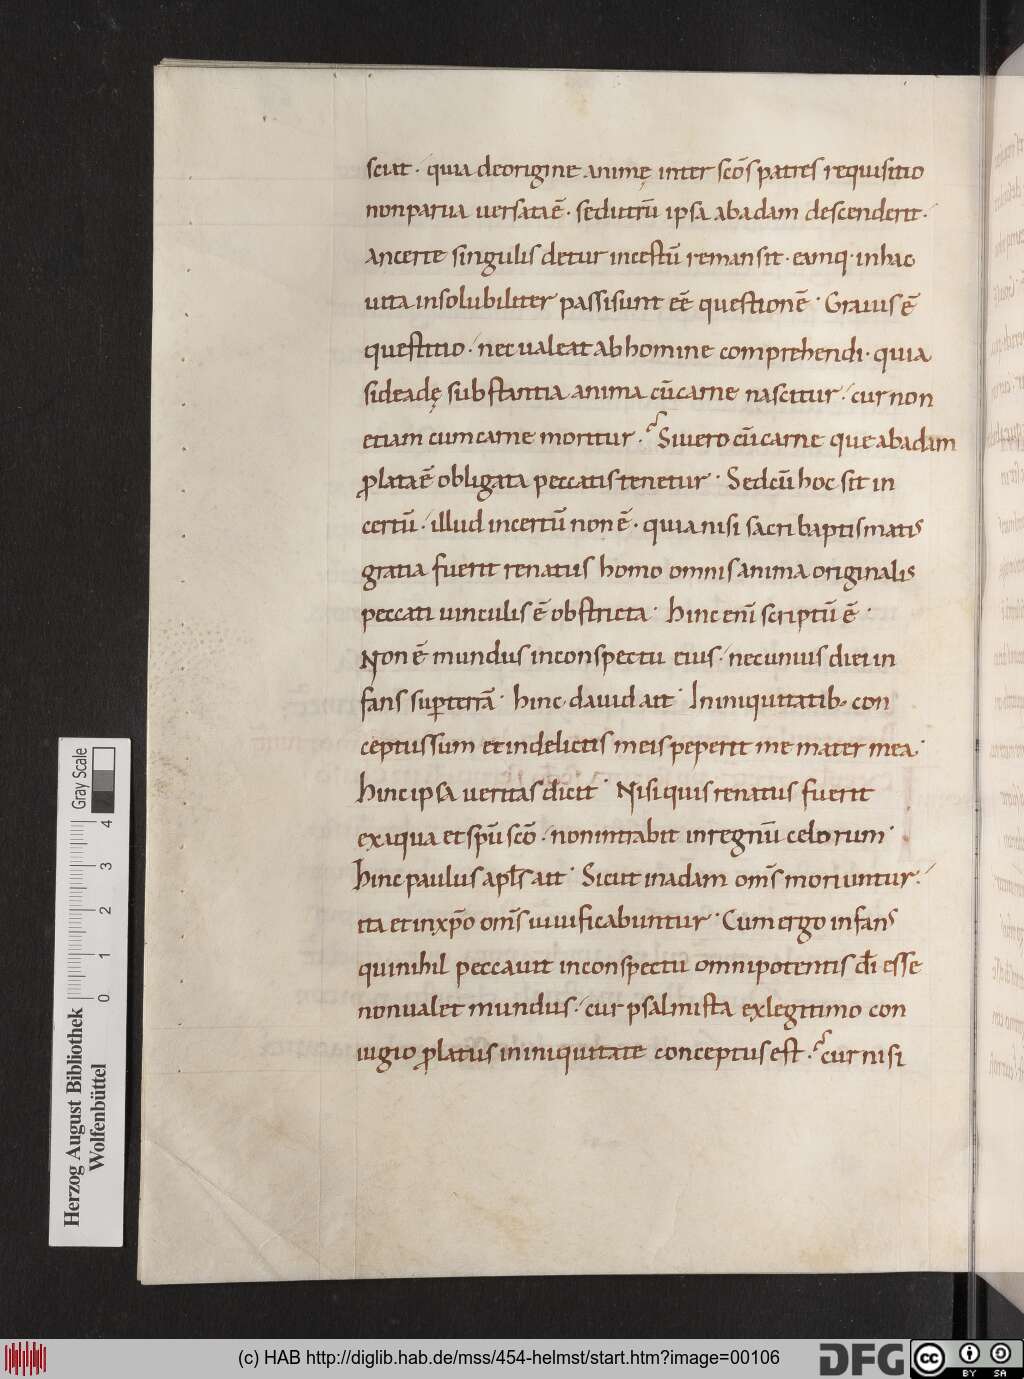 sciat· quia deorigine animę inter scōs patres requisitio
nonparua uersataē· sedutrū ipsa abadam descenderit·
Ancerte singulis detur incestū remansit· eamq· inhac
uita insolubiliter passisunt eē questionē· Grauis ē
questitio· necualeat abhomine comprehendi· quia
sideadę substantia anima cūcarne nascitur· cur non
etiam cumcarne moritur· Siuero cūcarne que abadam
ꝓlataē obligata peccatis tenetur· Sedcū hoc sit in
certū· illud incertū non ē· quia nisi sacri baptismatis
gratia fuerit renatus homo omnis anima originalis
peccati uinculis ē obstricta· hinc enī scriptū ē·
Non ē mundus inconspectu eius· necunius diei in
fans suꝑterrā· hinc dauid ait· Ininiquitatib; con
ceptussum etindelictis meis peperit me mater mea·
hincipsa ueritas dicit· Nisiquis renatus fuerit
exaqua et spū scō· nonintrabit inregnū celorum·
hinc paulus apl̄s ait· Sicut inadam om̄s moriuntur·
ita et inxp̄o om̄s uiuificabuntur· Cum ergo infans
quinihil peccauit inconspectu omnipotentis dī esse
nonualet mundus· cur psalmista exlegitimo con
iugio ꝓlatus ininiquitate conceptus est· cur nisi
Gray Scale
4
3
2
1
0
Herzog August Bibliothek
Wolfenbüttel
(c) HAB http://diglib.hab.de/mss/454-helmst/start.htm?image=00106
DFG
cc BY SA